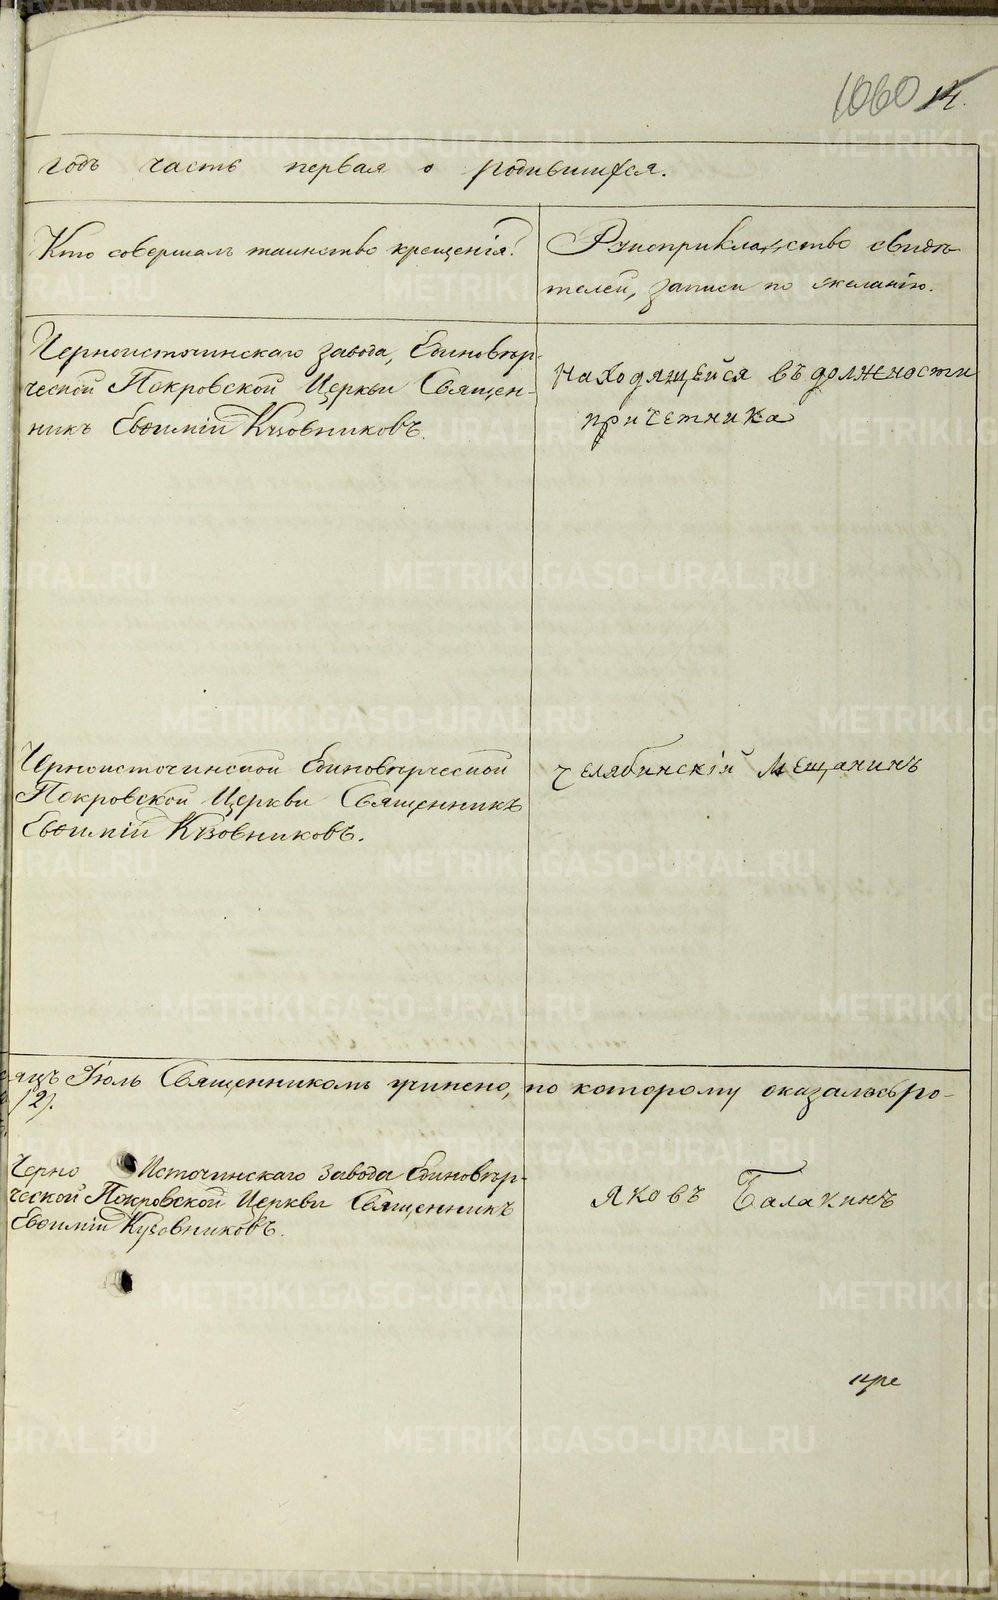 1060 14.
годъ часть первая о родившихся.
Кто совершалъ таинство крещенія?
Рукоприкладство свидѣ-
телей, записи по желанію.
Черноисточинскаго завода, Единовѣр-
ческой Покровской Церкви Священ-
никъ Евѳимій Кузовниковъ.
Находящейся въ должности
причетника
Черноисточинской Единовѣрческой
Покровской Церкви Священникъ
Евѳимій Кузовниковъ.
Челябинскій Мещанинъ
яцъ Іюль Священникомъ учинено, по которому оказалось ро-
Черно Источинскаго завода Единовѣр-
ческой Покровской Церкви Священникъ
Евѳимій Кузовниковъ.
Яковъ Балакинъ
METRIKI.GASO-URAL.RU